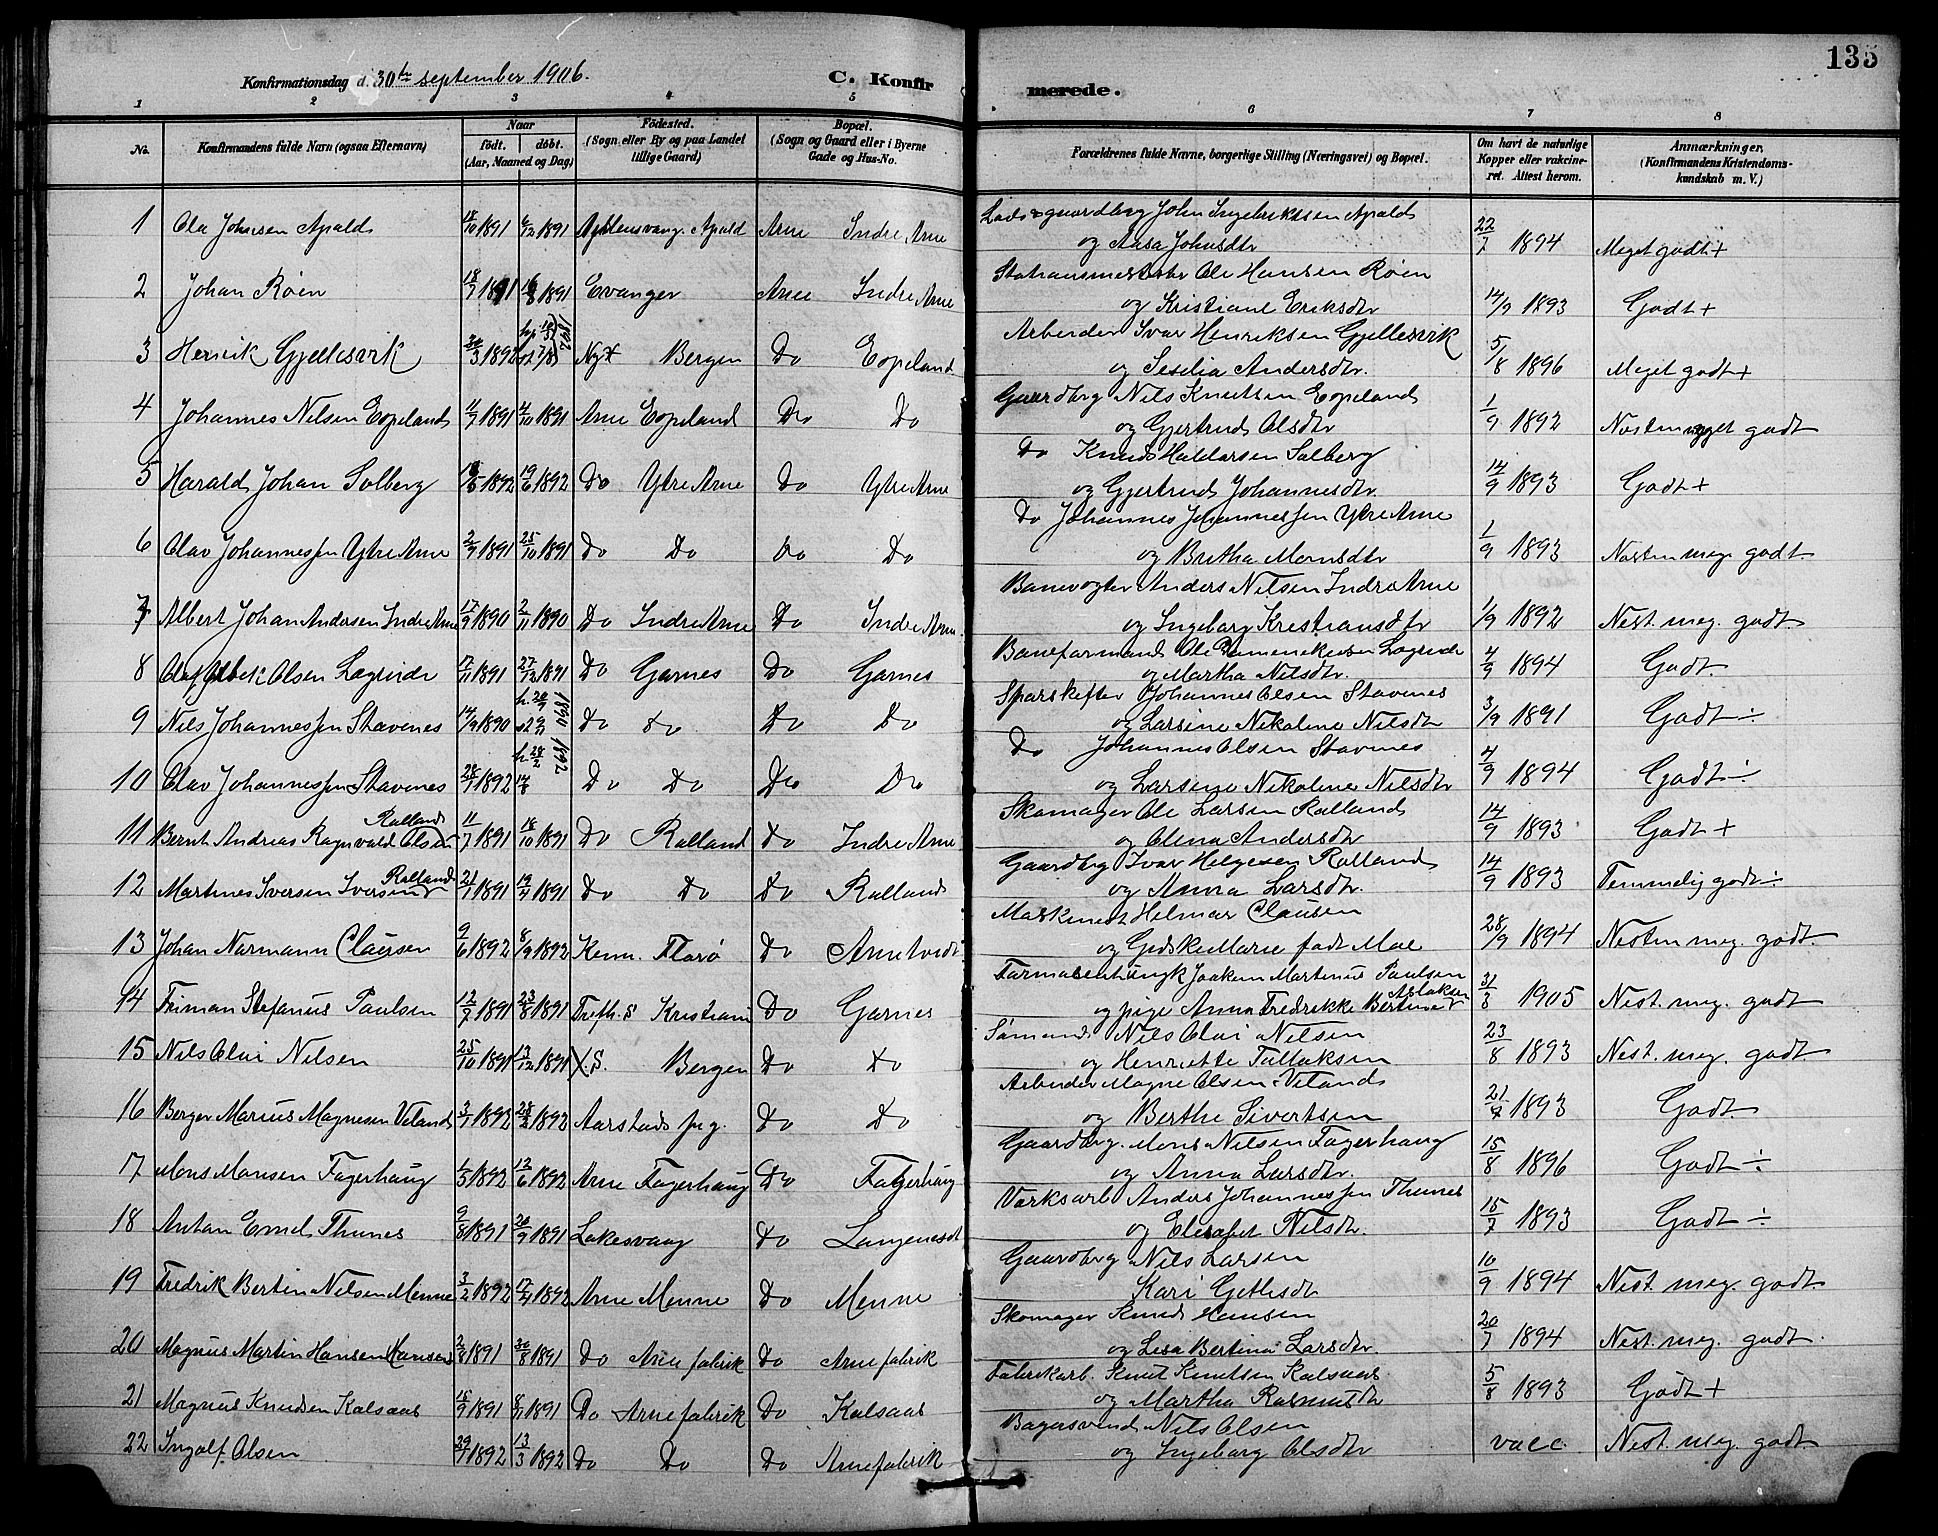 135
Konfirmationsdag d. 30te september 1906. C. Konfirmerede.
1 2 3 4 5 6 7 8
No. Konfirmandens fulde Navn (ogsaa Efternavn) Naar födt. döbt. (Aar, Maaned og Dag) Födested. (Sogn eller By og paa Landet tillige Gaard) Bopæl. (Sogn og Gaard eller i Byerne Gade og Hus-No. Forældrenes fulde Navne, borgerlige Stilling (Næringsvei) og Bopæl. Om havt de naturlige Kopper eller vakcineret. Attest herom. Anmærkninger. (Konfirmandens Kristendomskundskab m. V.)
1 Ola Johnsen Apald 1891 1891 Apald Arne Indre Arne John Apald
og Aasa Johnsdtr 22/7 1894 Meget godt +
2 Johan Röen 18/7 1891 16/8 1891 Evanger Arne Indre Arne Stationsmester Ole Hansen Röen
og Kristiane Eriksdtr 14/9 1893 Godt +
3 Henrik Gjellesvik 1892 1892 Nyk Bergen Do Eopeland Arbeider Ivar Henriksen Gjellesvik
og Sesilia Andersdtr. 5/8 1896 Meget godt +
4 Johannes Nilsen Eopeland 1891 1891 Arne Eopeland Do Do Gaardbrg Nils Knutsen Eopeland
og Gjertrud Olsdtr 1/9 1892 Næsten meget godt
5 Harald Johan Solberg 1892 19/6 1892 Do Ytre Arne Do Ytre Arne Do Knud Haldorsen Solberg
og Gjertrud Johannesdtr. 14/9 1893 Godt +
6 Olav Johannessen Ytre Arne 2/9 1891 25/10 1891 Do Do Do Do Do Johannes Johannessen Ytre Arne
og Britha Monsdtr 1/9 1893 Næsten meg. godt
7 Albert Johan Andersen Indre Arne 17/9 1890 2/11 1890 Do Indre Arne Do Indre Arne. Banevogter Anders Nilsen Indre Arne
og Ingeborg Kristiansdtr 1/9 1892 Nest. meg. godt.
8 Olsen Lægreide 17/11 1891 27/12 1891 Do Garnes Do Garnes Baneformand Ole Lægreide
og Martha Nilsdtr. 4/9 1894 Godt.
9 Nils Johannessen Stavenes 14/9 1890 1890 Do do Do Do Johannes Olsen Stavenes
og Larsine Nikoline Nilsdtr 3/9 1891 Godt ÷
10 Olav Johannessen Stavenes 28/1 1892 h. 28/2 1892 Do Do Do Do Do Johannes Olsen Stavenes
og Larsine Nikoline Nilsdtr 4/9 1894 Godt ÷
11 Bernt Andreas Ragnvald Olsen Ralland 11/7 1891 18/10 1891 Do Ralland Do Indre Arne Skomager Ole Larsen Ralland
og Olina Andersdtr 14/9 1893 Godt +
12 Martines Iversen Iversen Ralland 1891 1891 Do Do Do Ralland Gaardbrg Ivar Helgesen Ralland
og Anna Larsdtr. 14/9 1893 Temmelig godt ÷
13 Johan Normann Clausen 9/6 1892 8/9 1892 Kinn. Florö Do Arnetvedt Maskinist Helmar Clausen
og Gidske Marie født Moe 28/9 1894 Nesten meg. godt.
14 Friman Stefanus Paulsen 12/7 1891 23/8 1891 Kristiania Do Garnes Joakum Martinus Paulsen
og pige Anna Fredrikke Bertine Aslaksen 31/3 1905 Nest. meg. godt
15 Nils Olai Nilsen 25/10 1891 13/12 1891 Bergen Do Do Sömand Nils Olai Nilsen
og Henriette Tollaksen 23/8 1893 Nest. meg. godt
16 Berger Marius Magnesen Veland 3/1 1892 28/2 1892 Aarstad pg. Do Do Arbeider Magne Olsen Veland
og Berthe Sivertsen 21/7 1893 Godt
17 Mons Monsen Fagerhaug 1892 12/6 1892 Arne Fagerhaug Do Fagerhaug Gaardbrg. Mons Nilsen Fagerhaug
og Anna Larsdtr. 15/8 1896 Godt ÷
18 Anton Emil Thunes 9/8 1891 20/9 1891 Laksevaag Do Værksarb Anders Johannessen Thunes
og Elisabet Nilsdtr. 15/7 1893 Godt ÷
19 Fredrik Bertin Nilsen Menne 3/2 1892 17/4 1892 Arne Menne Do Menne Gaardbrg Nils Larsen
Kari Gethesdt 10/9 1894 Nest. meg. godt
20 Magnus Martin Hansen Hansen 1891 30/8 1891 Do Arnefabrik Do Arnefabrik Skomager Knud Hansen
og Lisa Bertina Larsdtr. 20/7 1894 Nest. meg. godt.
21 Magnus Knudsen Kalsaas 15/9 1891 8/11 1891 Do Arnefabrik Do Kalsaas Fabrikarb. Knut Knutsen Kalsaas
og Martha Rasmusdtr 5/8 1893 Godt +
22 Ingolf Olsen 29/1 1892 13/3 1892 Do Do Do Arnefabrik Bagersvend Nils Olsen
og Ingeborg Olsdtr vacc. Nest. meg. godt